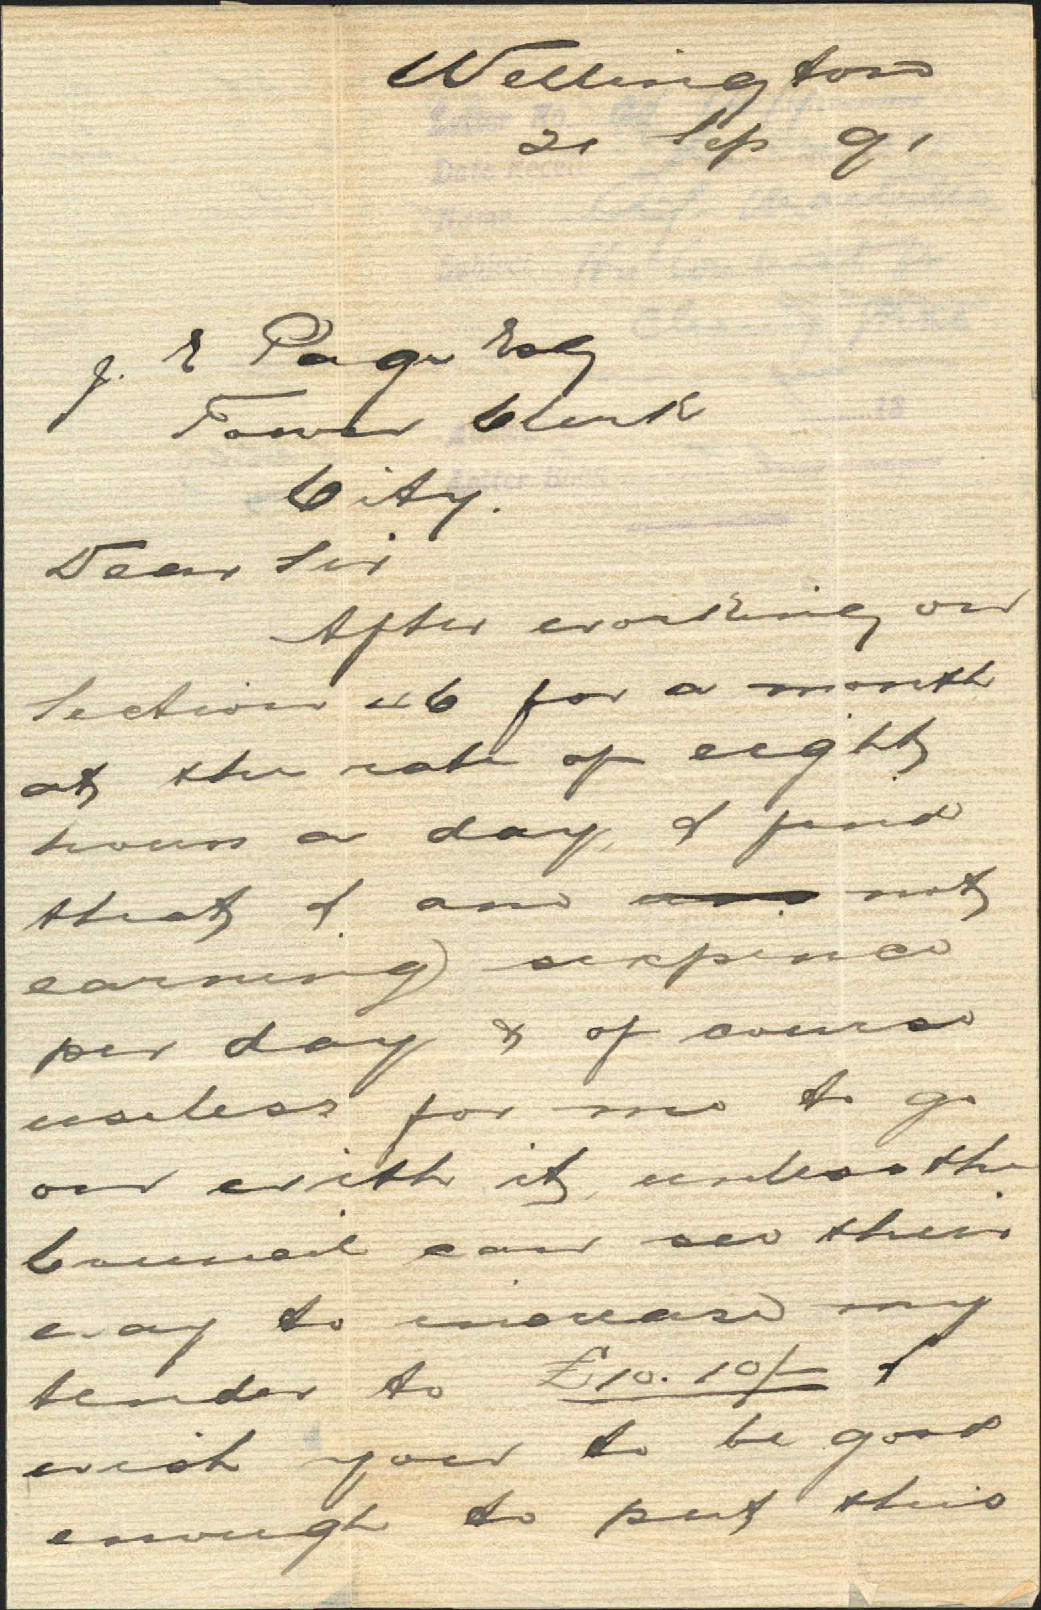 Wellington
21 Sep 91
J. E Page Esq
Town Clerk
City.
Dear Sir
After working on
Section 46 for a month
at the rate of eight
hours a day, I find
that I am not
earning sixpence
per day & of course
useless for me to go
on with it, unless the
Council can see their
way to increase my
tender to £10.10/- I
wish you to be good
enough to put this